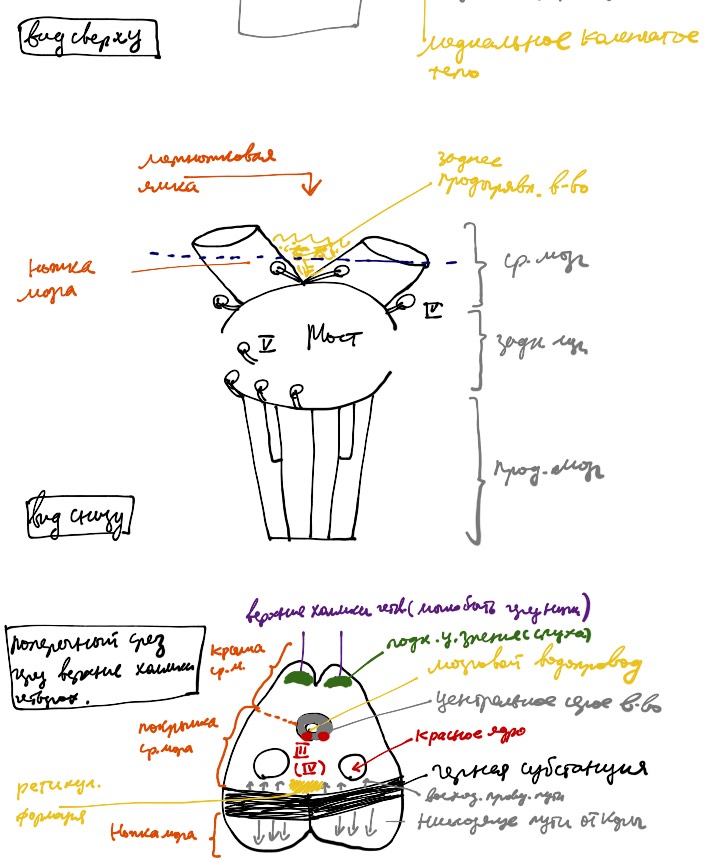 вид сверху
медиальное коленчатое
тело
межножковая
ямка
заднее
продырявл. в-во
ножка
мозга
ср. мозг
IV
V
Мост
задн
прод. мозг
вид снизу
верхние холмики четв (могло быть
поперечный срез
верхние холмики
крыша
ср. м.
подк. ц. зрение (слуха)
мозговой водопровод
центральное серое в-во
покрышка
ср. мозга
красное ядро
III
(IV)
черная субстанция
ретикул.
формация
восход. провод. пути
ножка мозга
нисходящие пути от коры